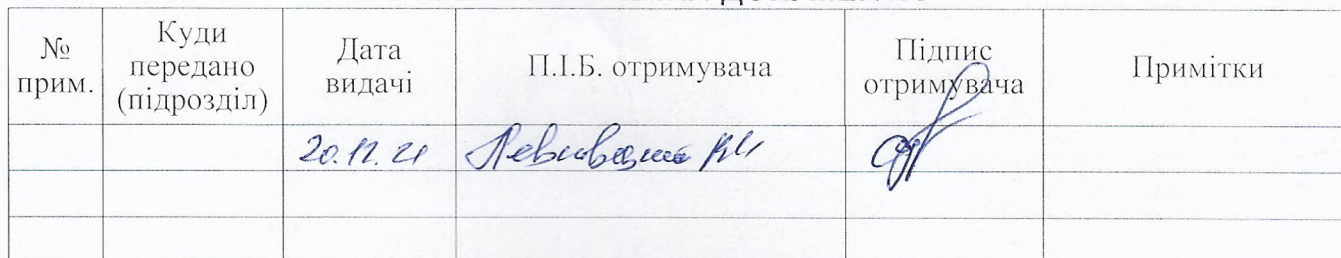 № прим. Куди передано (підрозділ) Дата видачі П.І.Б. отримувача Підпис отримувача Примітки
20.12.21